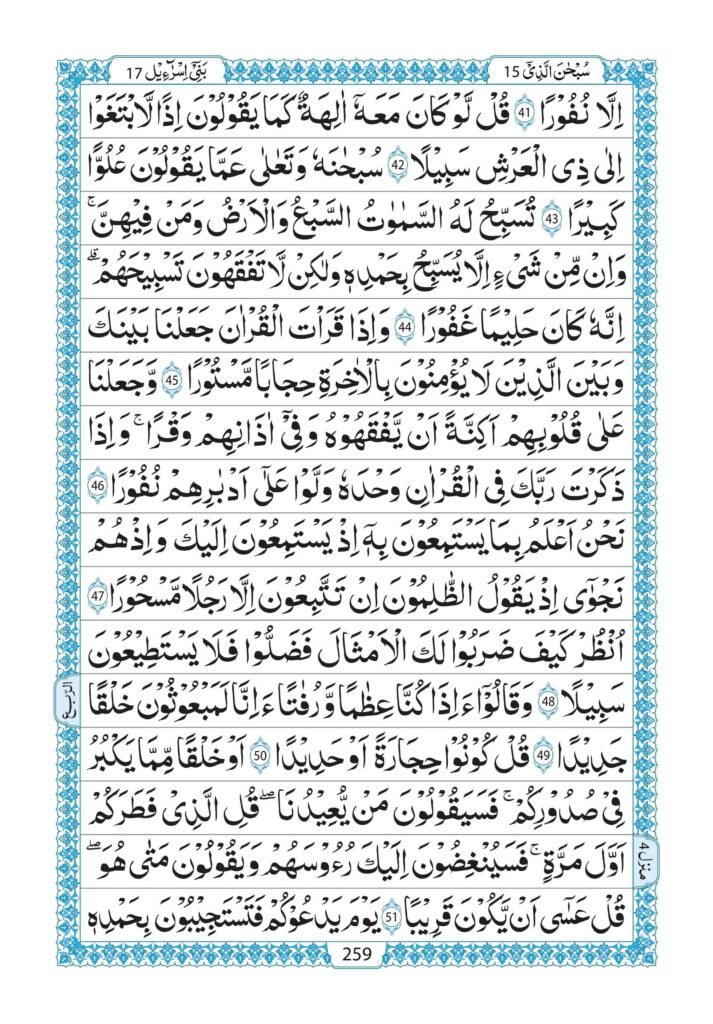 سُبْحٰنَ الَّذِیْۤ 15
بَنِیْۤ اِسْرَآءِیْل 17
اِلَّا نُفُوْرًا 41 قُلْ لَّوْ كَانَ مَعَهٗۤ اٰلِهَةٌ كَمَا یَقُوْلُوْنَ اِذًا لَّابْتَغَوْا
اِلٰى ذِی الْعَرْشِ سَبِیْلًا 42 سُبْحٰنَهٗ وَ تَعٰلٰى عَمَّا یَقُوْلُوْنَ عُلُوًّا
كَبِیْرًا 43 تُسَبِّحُ لَهُ السَّمٰوٰتُ السَّبْعُ وَ الْاَرْضُ وَ مَنْ فِیْهِنَّ ؕ
وَ اِنْ مِّنْ شَیْءٍ اِلَّا یُسَبِّحُ بِحَمْدِهٖ وَ لٰكِنْ لَّا تَفْقَهُوْنَ تَسْبِیْحَهُمْ ؕ
اِنَّهٗ كَانَ حَلِیْمًا غَفُوْرًا 44 وَ اِذَا قَرَاْتَ الْقُرْاٰنَ جَعَلْنَا بَیْنَكَ
وَ بَیْنَ الَّذِیْنَ لَا یُؤْمِنُوْنَ بِالْاٰخِرَةِ حِجَابًا مَّسْتُوْرًا 45 وَّ جَعَلْنَا
عَلٰى قُلُوْبِهِمْ اَكِنَّةً اَنْ یَّفْقَهُوْهُ وَ فِیْۤ اٰذَانِهِمْ وَقْرًا ؕ وَ اِذَا
ذَكَرْتَ رَبَّكَ فِی الْقُرْاٰنِ وَحْدَهٗ وَلَّوْا عَلٰۤى اَدْبٰرِهِمْ نُفُوْرًا 46
نَحْنُ اَعْلَمُ بِمَا یَسْتَمِعُوْنَ بِهٖۤ اِذْ یَسْتَمِعُوْنَ اِلَیْكَ وَ اِذْ هُمْ
نَجْوٰۤى اِذْ یَقُوْلُ الظّٰلِمُوْنَ اِنْ تَتَّبِعُوْنَ اِلَّا رَجُلًا مَّسْحُوْرًا 47
اُنْظُرْ كَیْفَ ضَرَبُوْا لَكَ الْاَمْثَالَ فَضَلُّوْا فَلَا یَسْتَطِیْعُوْنَ
سَبِیْلًا 48 وَ قَالُوْۤا ءَاِذَا كُنَّا عِظٰمًا وَّ رُفٰتًا ءَاِنَّا لَمَبْعُوْثُوْنَ خَلْقًا
جَدِیْدًا 49 قُلْ كُوْنُوْا حِجَارَةً اَوْ حَدِیْدًا 50 اَوْ خَلْقًا مِّمَّا یَكْبُرُ
فِیْ صُدُوْرِكُمْ ۚ فَسَیَقُوْلُوْنَ مَنْ یُّعِیْدُنَا ؕ قُلِ الَّذِیْ فَطَرَكُمْ
اَوَّلَ مَرَّةٍ ۚ فَسَیُنْغِضُوْنَ اِلَیْكَ رُءُوْسَهُمْ وَ یَقُوْلُوْنَ مَتٰى هُوَ ؕ
قُلْ عَسٰۤى اَنْ یَّكُوْنَ قَرِیْبًا 51 یَوْمَ یَدْعُوْكُمْ فَتَسْتَجِیْبُوْنَ بِحَمْدِهٖ
الربع
منزل ۴
259